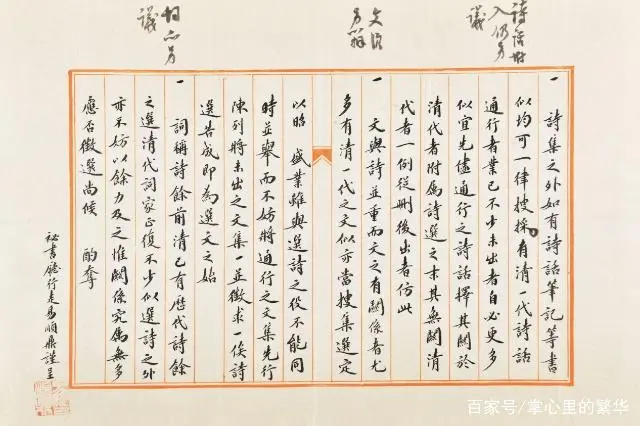 詩話附
入仍另
議
文候
另辦
詞亦另
議
一 詩集之外如有詩話筆記等書
似均可一律搜採有清一代詩話
通行者業已不少未出者自必更多
似宜先儘通行之詩話擇其關於
清代者附屬詩選之末其無關清
代者一例從刪後出者仿此
一 文與詩並重而文之有關係者尤
多有清一代之文似亦當搜集選定
以昭 盛業雖與選詩之役不能同
時並舉而不妨將通行之文集先行
陳列將未出之文集一並徵求一俟詩
選告成即為選文之始
一 詞稱詩餘前清已有歷代詩餘
之選清代詞家正復不少似選詩之外
亦不妨以餘力及之惟關係究屬無多
應否徵選尚候 酌奪
祕書廳行走易順鼎謹呈
百家号/掌心里的繁华